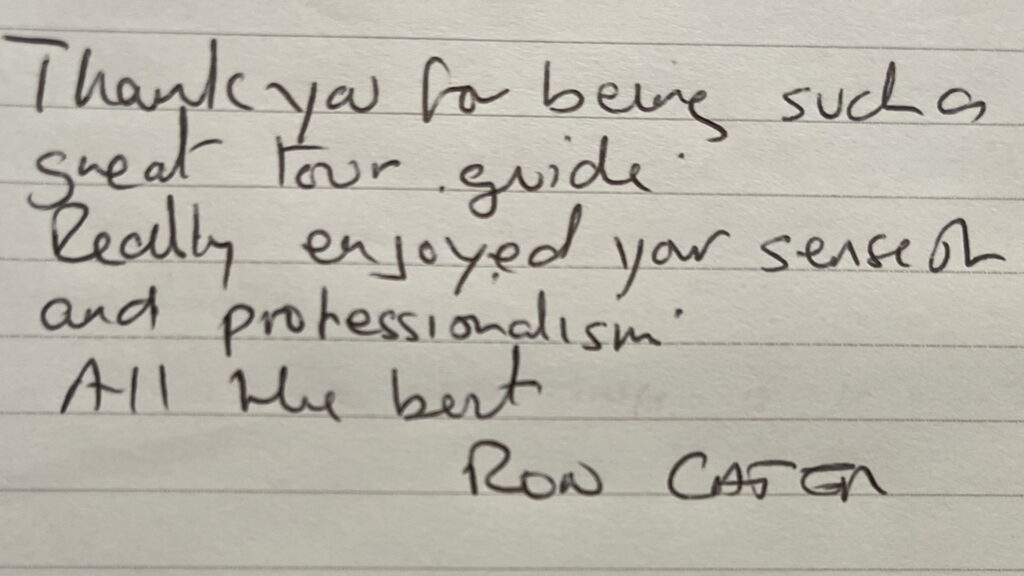 Thank you for being such a
great tour guide.
Really enjoyed your sense of
and professionalism.
All the best
RON